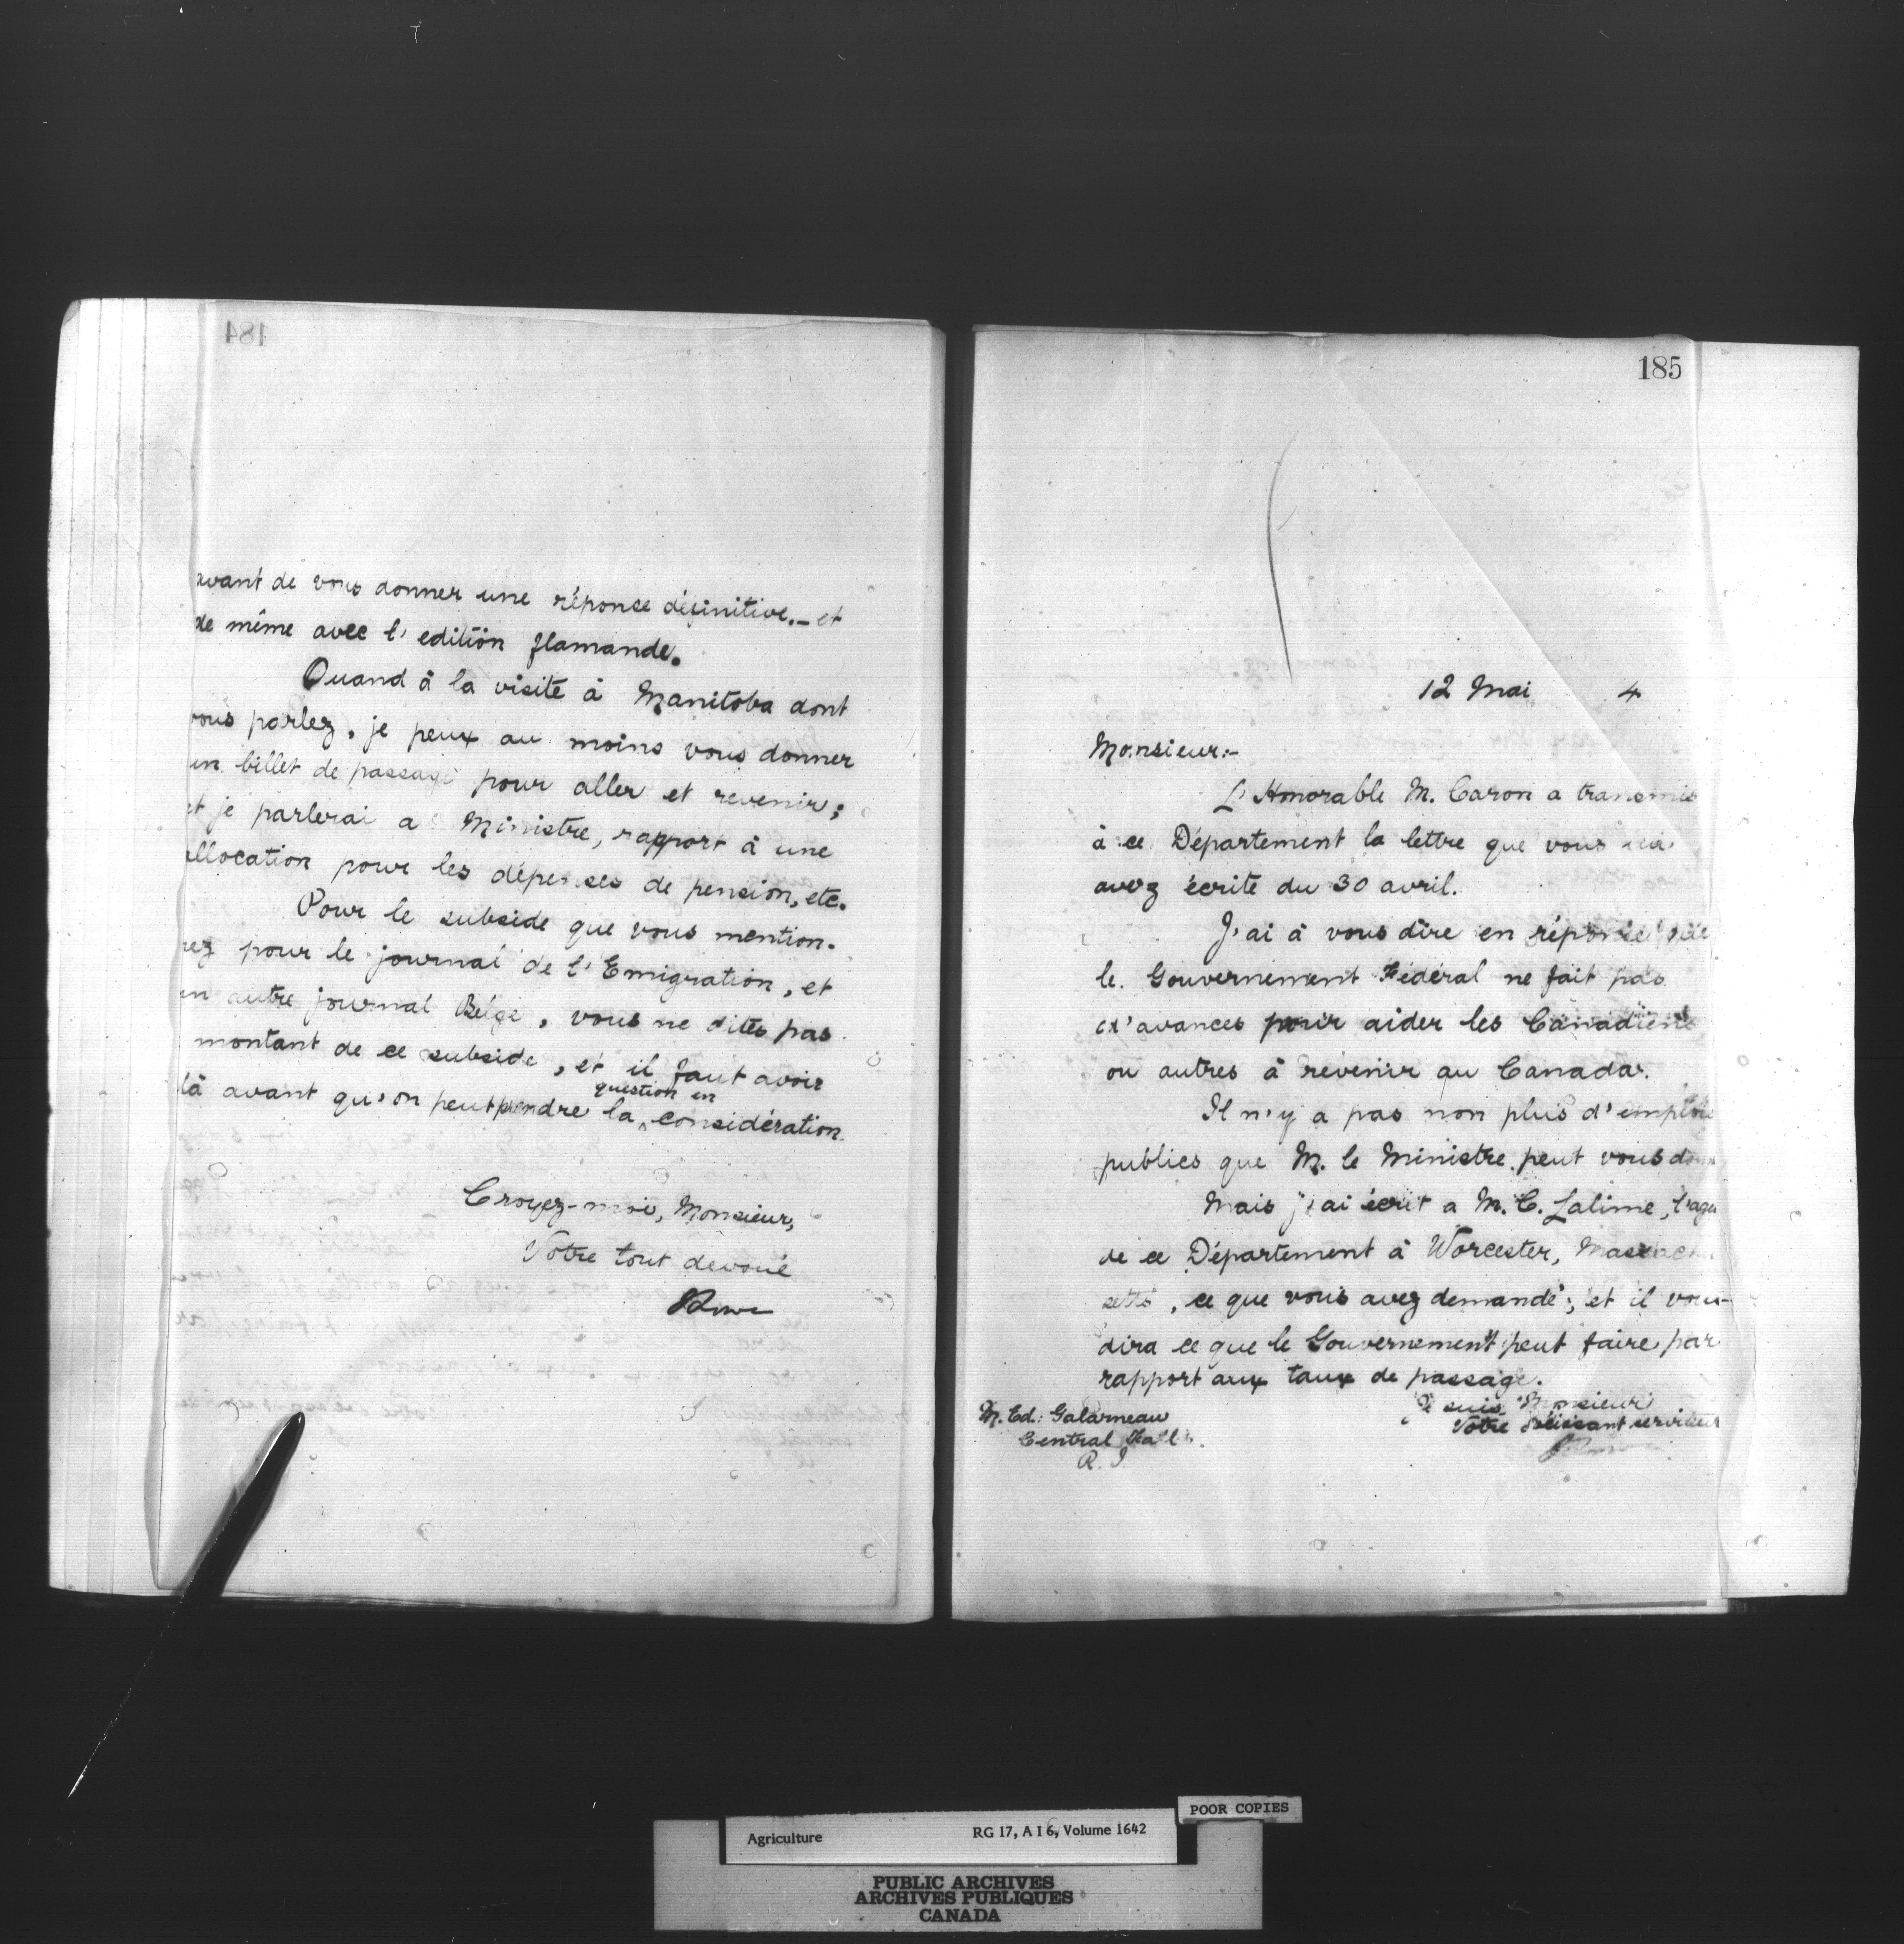 184
avant de vous donner une réponse définitive. – et
de même avec l'edition flamande.
Quand à la visite à Manitoba dont
vous parlez, je peux au moins vous donner
un billet de passage pour aller et revenir;
et je parlerai a Ministre, rapport à une
allocation pour les dépenses de pension, etc.
Pour le subside que vous mention-
nez pour le journal de l'Emigration, et
un autre journal Belge, vous ne dites pas
montant de ce subside, et il faut avoir
là avant qu'on peut prendre la question en considération.
Croyez-moi, Monsieur,
Votre tout dévoué
185
12 Mai 4
Monsieur:-
L'Honorable M. Caron a transmis
à ce Département la lettre que vous
avez écrite du 30 avril.
J'ai à vous dire en réponse que
le Gouvernement Fédéral ne fait pas
d'avances pour aider les Canadiens
ou autres à revenir au Canada.
Il n'y a pas non plus d'emplois
publics que M. le Ministre peut vous donn
Mais j'ai écrit a M. C. Lalime, l'agen
de ce Département à Worcester, Massachu
setts, ce que vous avez demandé; et il vous
dira ce que le Gouvernement peut faire par
rapport aux taux de passage.
Je suis Monsieur
Votre obéissant serviteur
M. Ed. Galarneau
Central Falls
R. I.
POOR COPIES
Agriculture RG 17, A I 6, Volume 1642
PUBLIC ARCHIVES
ARCHIVES PUBLIQUES
CANADA